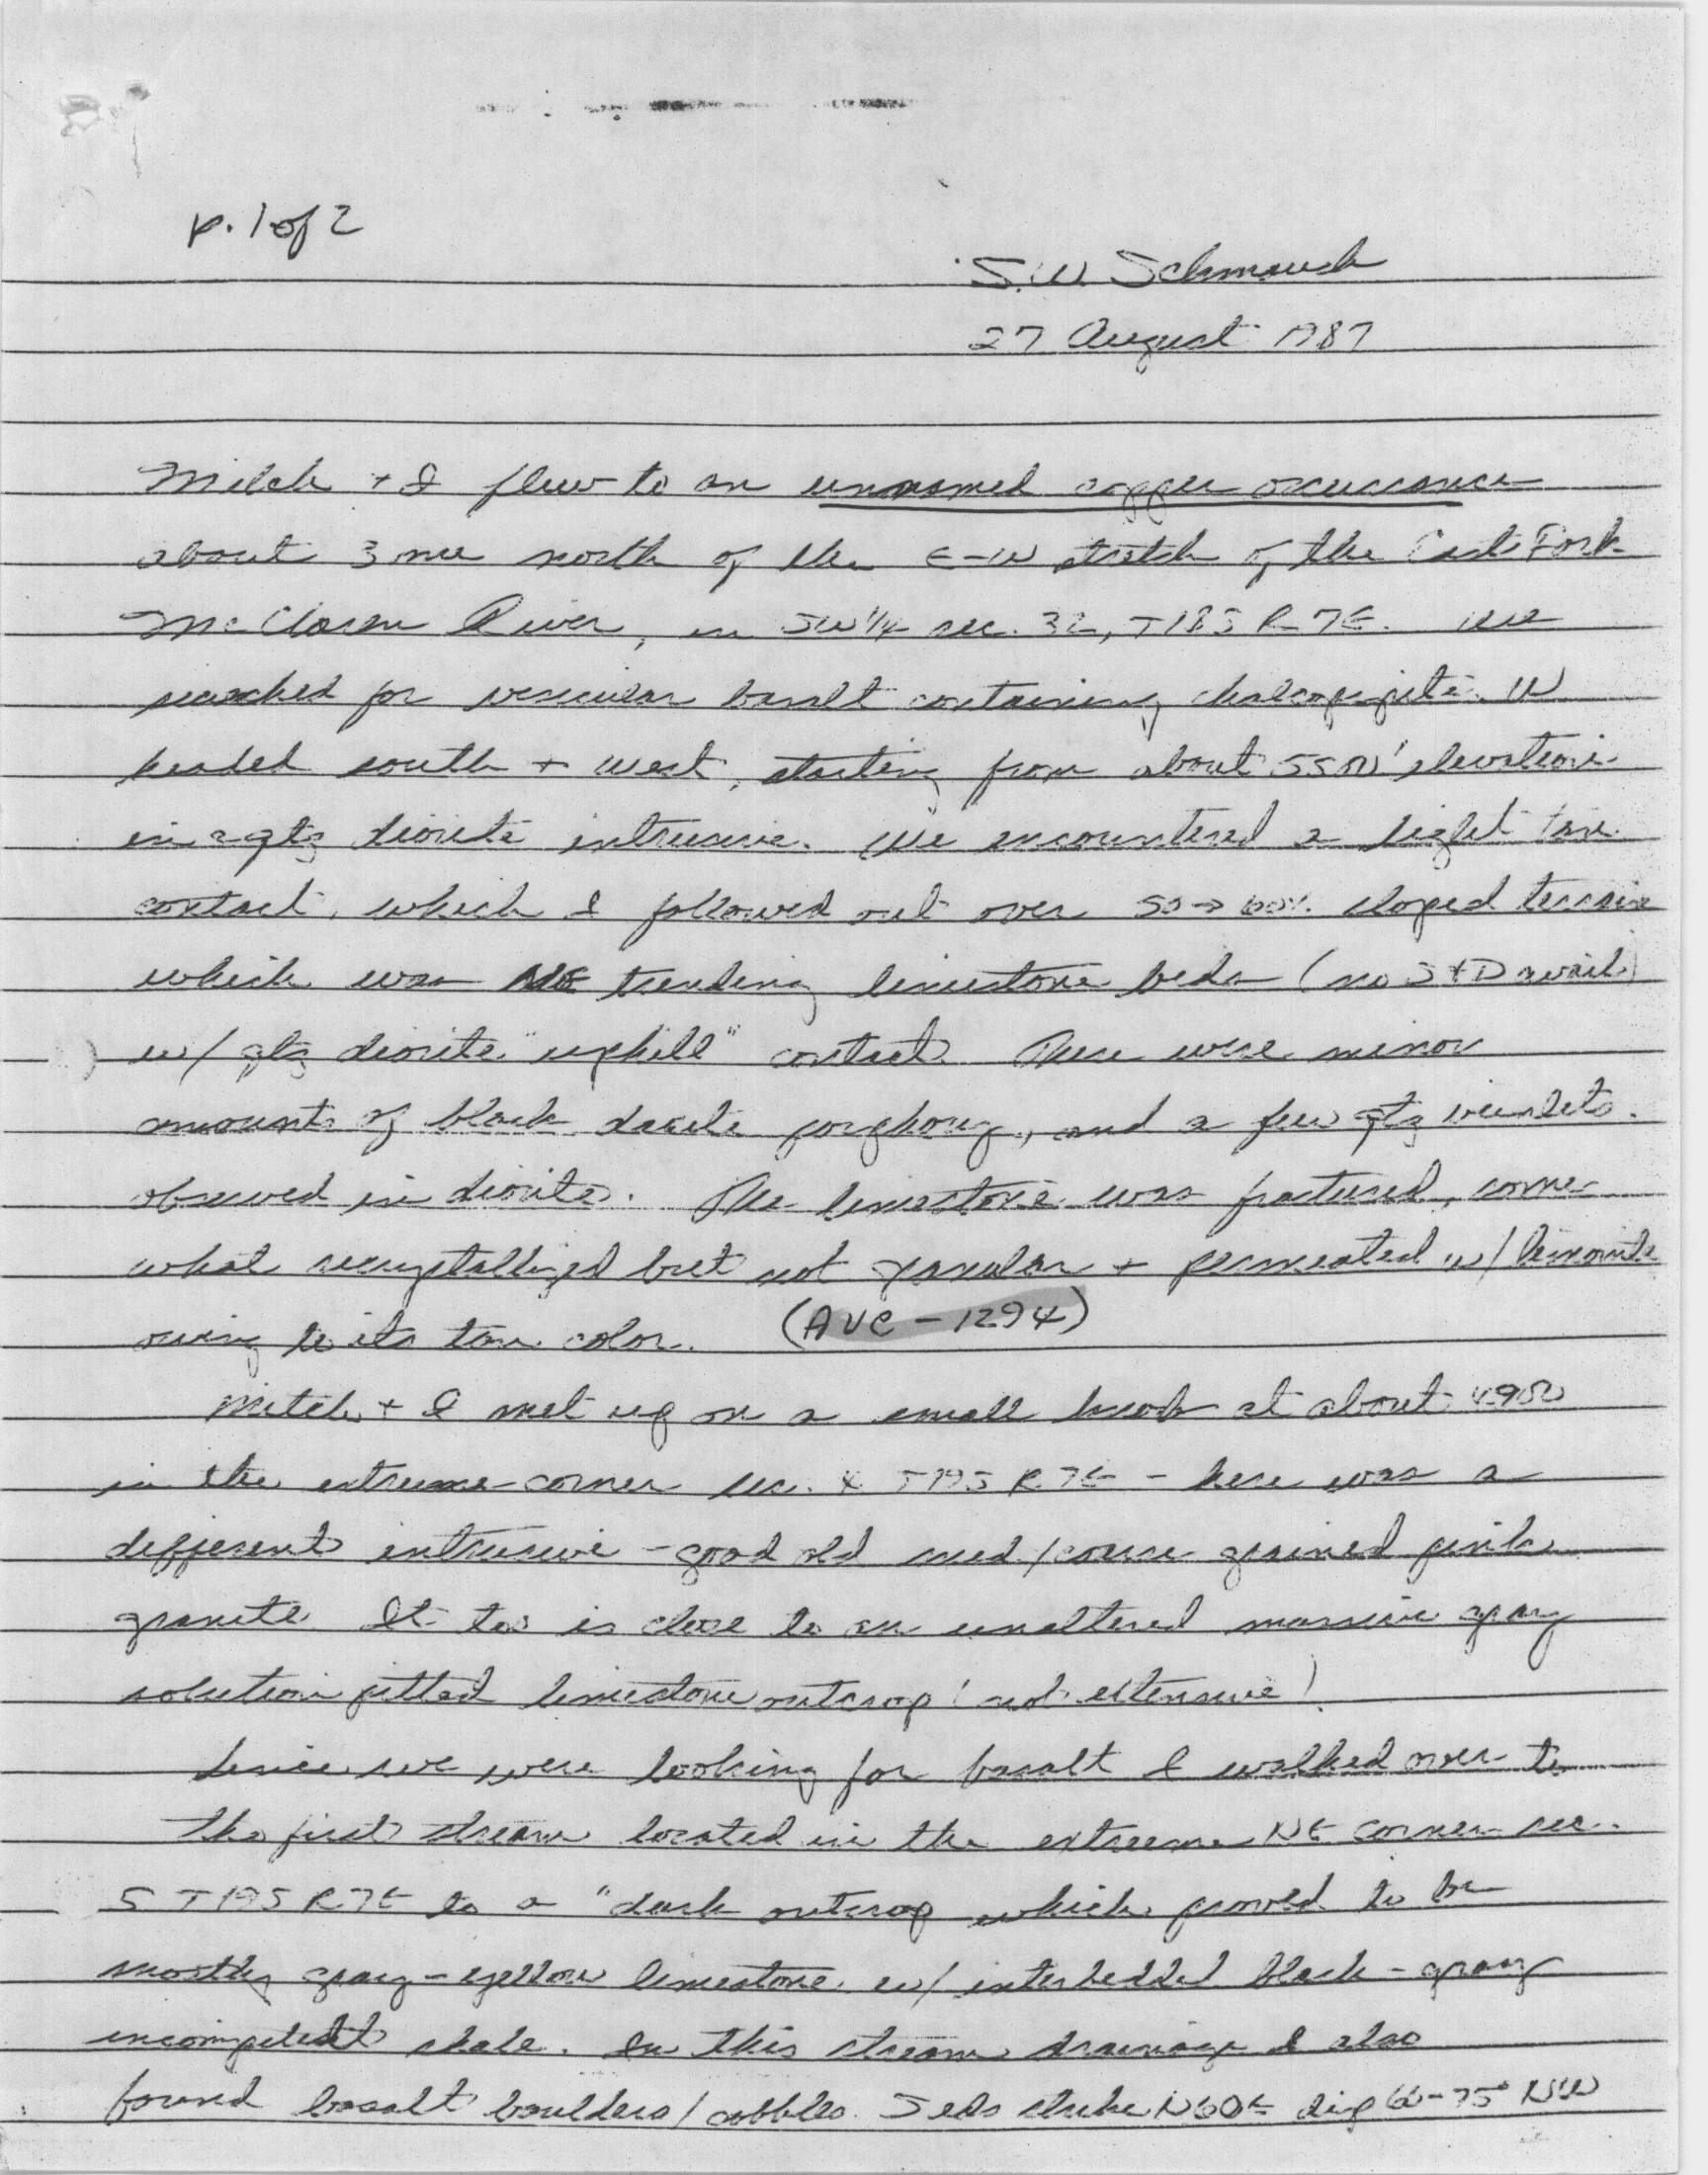 p. 1 of 2
S.W. Schmauch
27 August 1987
Mitch + I flew to an unnamed copper occurrance
about 3 mi north of the E-W stretch of the East Fork
McClaren River, in SW 1/4 sec. 32, T18S R7E. We
searched for vesicular basalt containing chalcopyrite. W
headed south + west, starting from about 5500' elevation
in a qtz diorite intrusive. We encountered a light tan
contact, which I followed out over 50 → 60% sloped terrain
which was NE trending limestone beds (no S+D avail)
w/ qtz diorite "uphill" contact. There were minor
amounts of black dacite porphory, and a few qtz veinlets
observed in diorite. The limestone was fractured, some-
what recrystallized but not granular + permeated w/ limonite
owing to its tan color. (AVC-1294)
Mitch + I met up on a small knob at about 4900
in the extreme corner sec. 4 T19S R7E - here was a
different intrusive - good old med/coarse grained pink
granite. It too is close to an unaltered massive gray
solution pitted limestone outcrop (not extensive)
Since we were looking for basalt I walked over to
the first stream located in the extreme NE corner sec.
5 T19S R7E to a "dark outcrop which proved to be
mostly gray-yellow limestone w/ interbedded black-gray
incompetent shale. In this stream drainage I also
found basalt boulders/cobbles. Seds strike N60E dip 60-75° NW